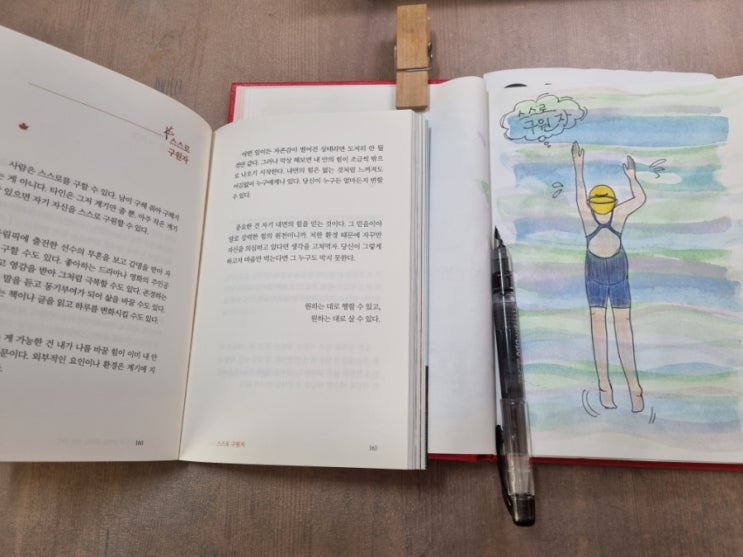 스스로
구원자
사람은 스스로를 구할 수 있다. 남이 구해 줘야 구해지
는 게 아니다. 타인은 그저 계기만 줄 뿐, 아주 작은 계기
있으면 자기 자신을 스스로 구원할 수 있다.
림픽에 출전한 선수의 투혼을 보고 감명을 받아 자
구할 수도 있다. 좋아하는 드라마나 영화의 주인공
영감을 받아 그처럼 극복할 수도 있다. 존경하는
말을 듣고 동기부여가 되어 삶을 바꿀 수도 있다.
는 책이나 글을 읽고 하루를 변화시킬 수도 있다.
게 가능한 건 내가 나를 바꿀 힘이 이미 내 안
문이다. 외부적인 요인이나 환경은 계기에 지
160
어떤 일이든 자존감이 떨어진 상태라면 도저히 안 될
것만 같다. 그러나 막상 해보면 내 안의 힘이 조금씩 밖으
로 나오기 시작한다. 내면의 힘은 없는 것처럼 느껴져도
어김없이 누구에게나 있다. 당신이 누구든 얼마든지 변할
수 있다.
중요한 건 자기 내면의 힘을 믿는 것이다. 그 믿음이야
말로 강력한 힘의 원천이니까. 처한 환경 때문에 자꾸만
자신을 의심하고 있다면 생각을 고쳐먹자. 당신이 그렇게
하고자 마음만 먹는다면 그 누구도 막지 못한다.
원하는 대로 행할 수 있고,
원하는 대로 살 수 있다.
스스로 구원자
161
스스로
구원자